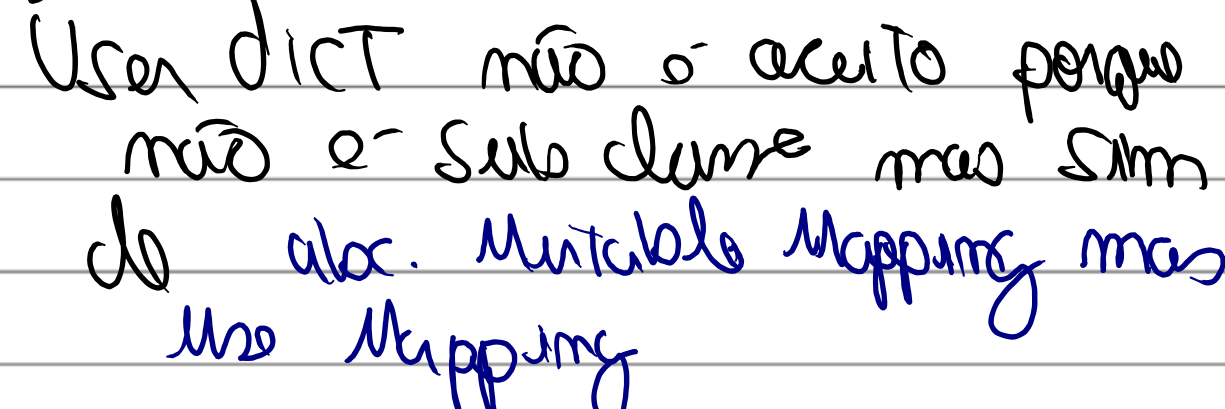 User dict não é aceito porque
não é sub classe mas sim
de abc. Mutable Mapping mas
Use Mapping